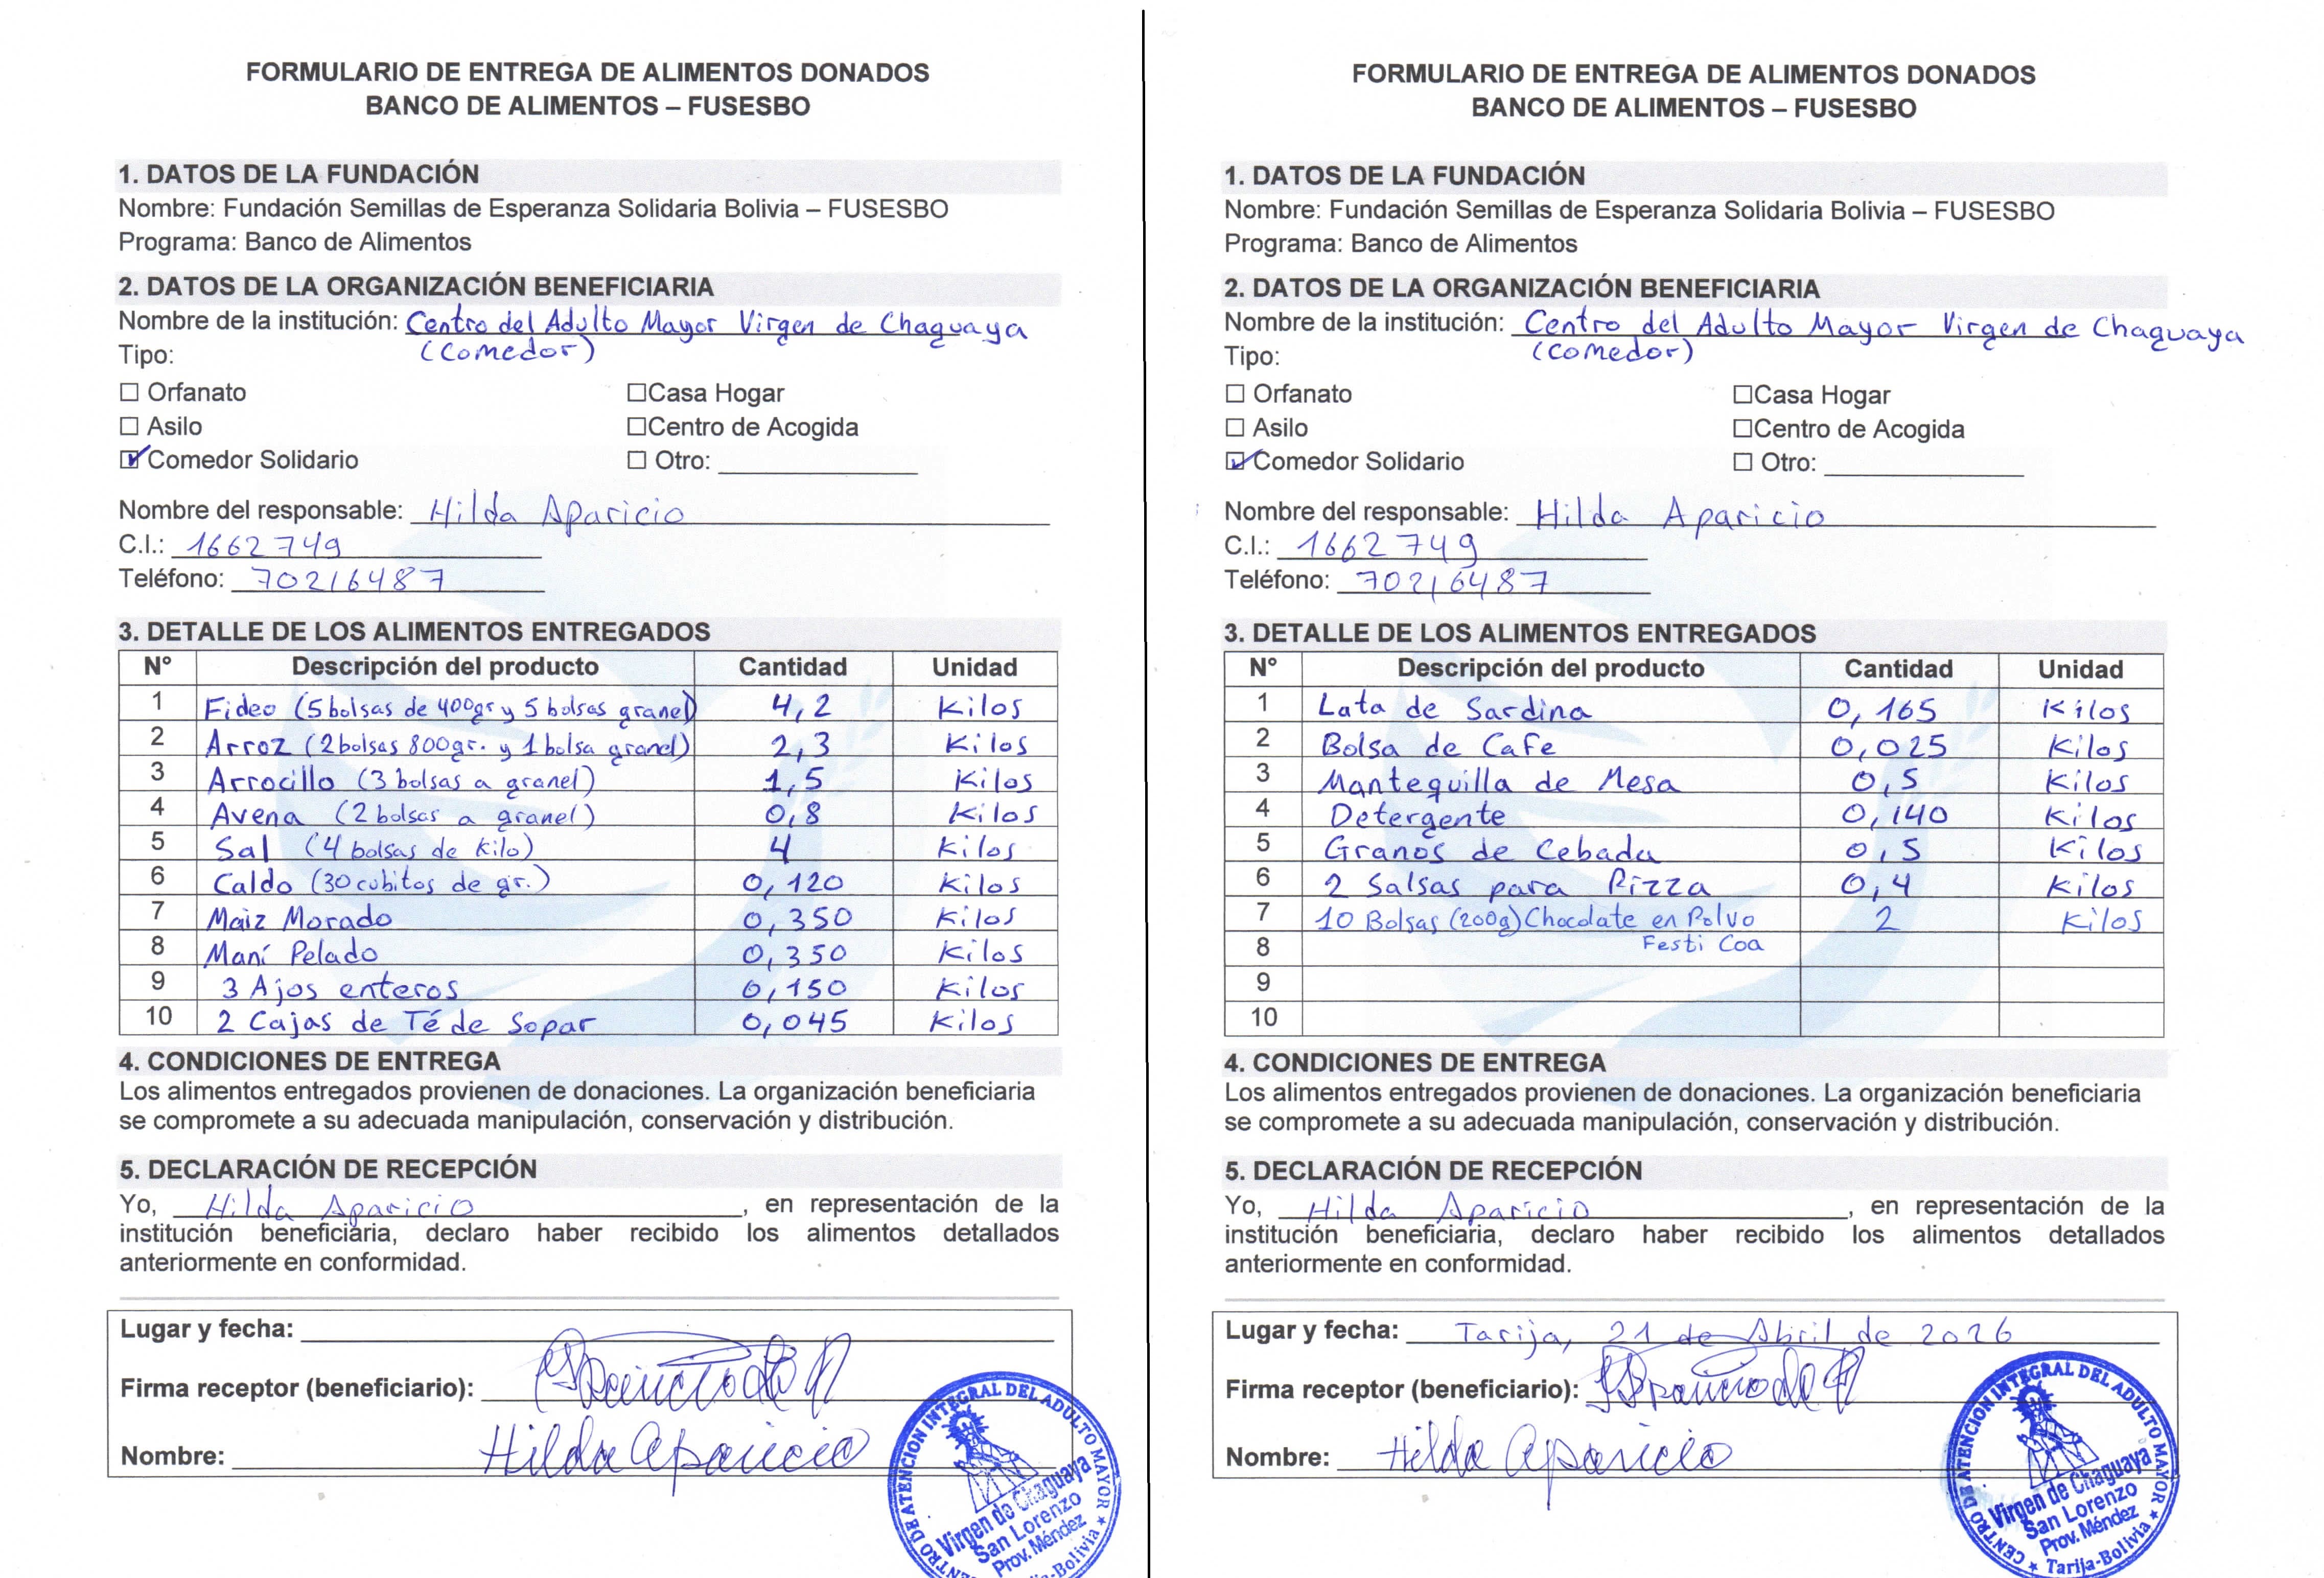 FORMULARIO DE ENTREGA DE ALIMENTOS DONADOS
BANCO DE ALIMENTOS – FUSESBO
1. DATOS DE LA FUNDACIÓN
Nombre: Fundación Semillas de Esperanza Solidaria Bolivia – FUSESBO
Programa: Banco de Alimentos
2. DATOS DE LA ORGANIZACIÓN BENEFICIARIA
Nombre de la institución: Centro del Adulto Mayor Virgen de Chaguaya
(Comedor)
Tipo:
☐ Orfanato ☐Casa Hogar
☐ Asilo ☐Centro de Acogida
☑ Comedor Solidario ☐ Otro:
Nombre del responsable: Hilda Aparicio
C.I.: 1662749
Teléfono: 70216487
3. DETALLE DE LOS ALIMENTOS ENTREGADOS
N° Descripción del producto Cantidad Unidad
1 Fideo (5 bolsas de 400gr y 5 bolsas granel) 4,2 Kilos
2 Arroz (2 bolsas 800gr. y 1 bolsa granel) 2,3 Kilos
3 Arrocillo (3 bolsas a granel) 1,5 Kilos
4 Avena (2 bolsas a granel) 0,8 Kilos
5 Sal (4 bolsas de Kilo) 4 Kilos
6 Caldo (30 cubitos de gr.) 0,120 Kilos
7 Maiz Morado 0,350 Kilos
8 Maní Pelado 0,350 Kilos
9 3 Ajos enteros 0,150 Kilos
10 2 Cajas de Té de Sopar 0,045 Kilos
4. CONDICIONES DE ENTREGA
Los alimentos entregados provienen de donaciones. La organización beneficiaria
se compromete a su adecuada manipulación, conservación y distribución.
5. DECLARACIÓN DE RECEPCIÓN
Yo, Hilda Aparicio, en representación de la
institución beneficiaria, declaro haber recibido los alimentos detallados
anteriormente en conformidad.
Lugar y fecha:
Firma receptor (beneficiario):
Nombre: Hilda Aparicio
CENTRO DE ATENCIÓN INTEGRAL DEL ADULTO MAYOR
Virgen de Chaguaya
San Lorenzo
Prov. Méndez
-Bolivia
FORMULARIO DE ENTREGA DE ALIMENTOS DONADOS
BANCO DE ALIMENTOS – FUSESBO
1. DATOS DE LA FUNDACIÓN
Nombre: Fundación Semillas de Esperanza Solidaria Bolivia – FUSESBO
Programa: Banco de Alimentos
2. DATOS DE LA ORGANIZACIÓN BENEFICIARIA
Nombre de la institución: Centro del Adulto Mayor Virgen de Chaguaya
(Comedor)
Tipo:
☐ Orfanato ☐Casa Hogar
☐ Asilo ☐Centro de Acogida
☑ Comedor Solidario ☐ Otro:
Nombre del responsable: Hilda Aparicio
C.I.: 1662749
Teléfono: 70216487
3. DETALLE DE LOS ALIMENTOS ENTREGADOS
N° Descripción del producto Cantidad Unidad
1 Lata de Sardina 0,165 Kilos
2 Bolsa de Cafe 0,025 Kilos
3 Mantequilla de Mesa 0,5 Kilos
4 Detergente 0,140 Kilos
5 Granos de Cebada 0,5 Kilos
6 2 Salsas para Pizza 0,4 Kilos
7 10 Bolsas (200g) Chocolate en Polvo 2 Kilos
8 Festi Coa
9
10
4. CONDICIONES DE ENTREGA
Los alimentos entregados provienen de donaciones. La organización beneficiaria
se compromete a su adecuada manipulación, conservación y distribución.
5. DECLARACIÓN DE RECEPCIÓN
Yo, Hilda Aparicio, en representación de la
institución beneficiaria, declaro haber recibido los alimentos detallados
anteriormente en conformidad.
Lugar y fecha: Tarija, 21 de Abril de 2026
Firma receptor (beneficiario):
Nombre: Hilda Aparicio
CENTRO DE ATENCIÓN INTEGRAL DEL ADULTO MAYOR
Virgen de Chaguaya
San Lorenzo
Prov. Méndez
Tarija-Bolivia